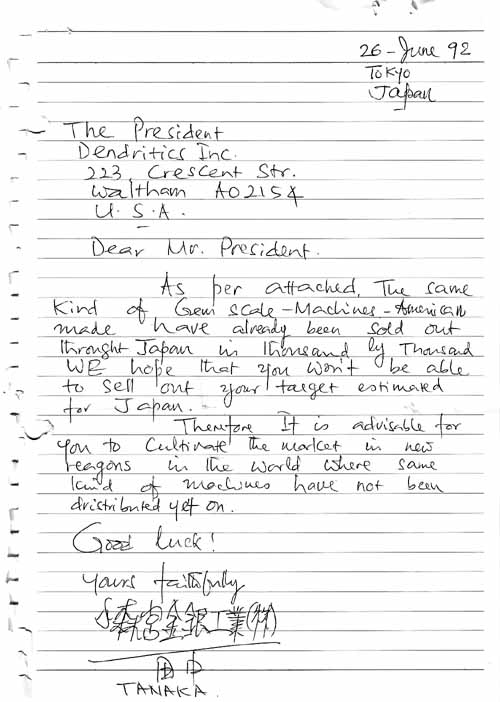 26-June 92
Tokyo
Japan
The President
Dendritics Inc.
223, Crescent Str.
Waltham A02154
U.S.A.
Dear Mr. President.
As per attached, The same
Kind of Gem scale-Machines-American
made have already been sold out
throught Japan in thousand by Thousand
WE hope that you won't be able
to sell out your target estimated
for Japan.
Therefore It is advisable for
you to cultivate the market in new
reagons in the world where same
kind of machines have not been
dristributed yet on.
Good luck!
Yours faithfully
森宮金銀工業(株)
TANAKA